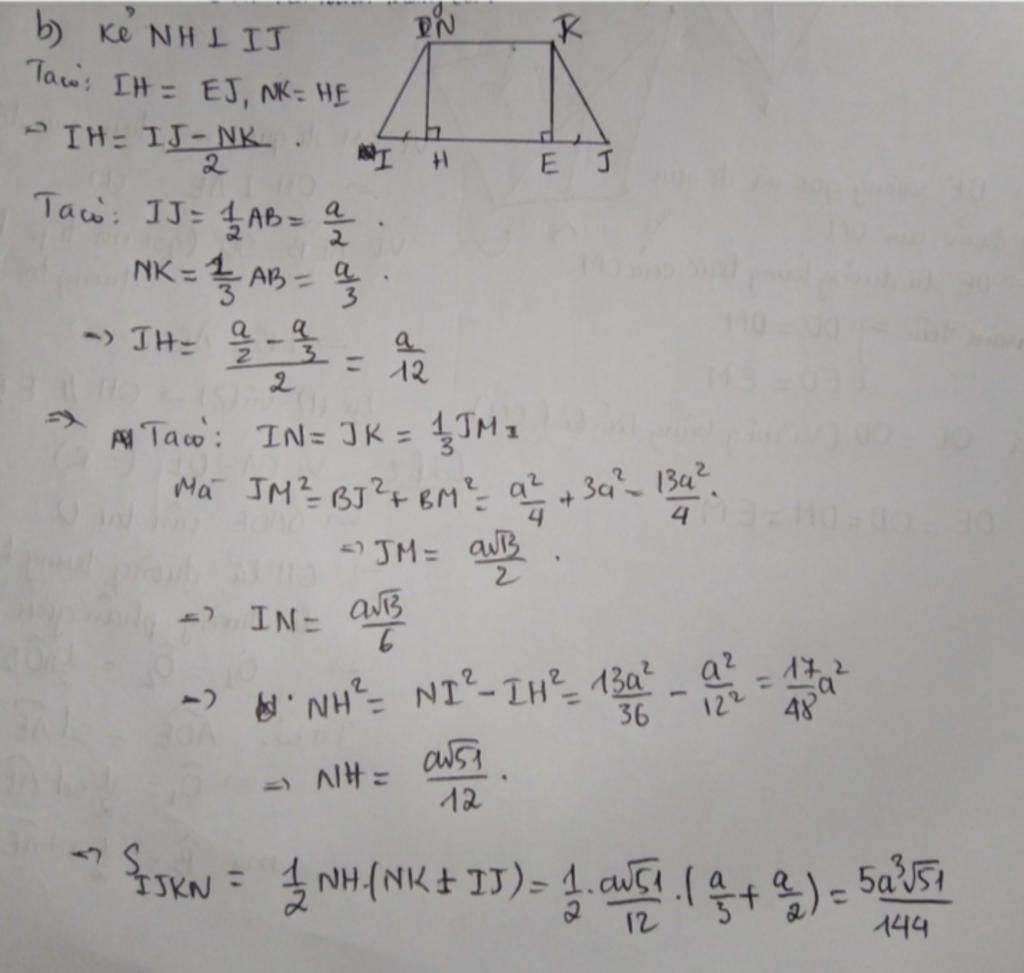 b) Kẻ NH ⊥ IJ
N K
I H E J
Ta có: IH = EJ, NK = HE
→ IH = (IJ - NK)/2 .
Ta có: IJ = 1/2 AB = a/2 .
NK = 1/3 AB = a/3 .
→ IH = (a/2 - a/3)/2 = a/12
⇒ Ta có: IN = JK = 1/3 JM
Mà JM² = BJ² + BM² = a²/4 + 3a² = 13a²/4 .
⇒ JM = a√13/2 .
⇒ IN = a√13/6
⇒ NH² = NI² - IH² = 13a²/36 - a²/12² = 17/48 a²
⇒ NH = a√51/12 .
⇒ S_IJKN = 1/2 NH.(NK + IJ) = 1/2 . a√51/12 . (a/3 + a/2) = 5a³√51/144